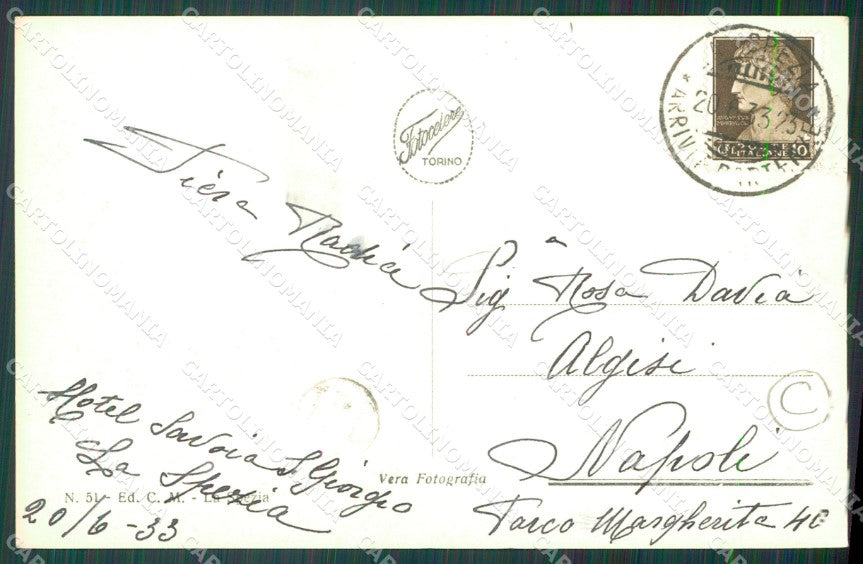 Fotocelere
TORINO
SPEZIA
ARRIVI PARTENZE
20.6.33
10
Sig.a Rosa Davià
Algisi
Napoli
Parco Margherita 40
Hotel Savoia S. Giorgio
La Spezia
20/6-33
Vera Fotografia
N. 51 - Ed. C. M. - La Spezia
C
CARTOLINOMANIA